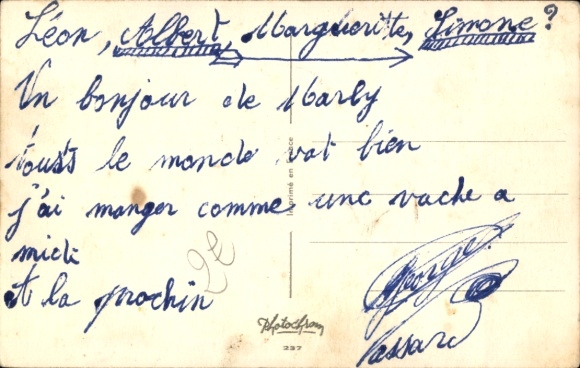 Léon, Albert, Marguerite, Simone?
Un bonjour de Marly
touts le monde vat bien
j'ai manger comme une vache a
midi
A la prochin
2e
Imprimé en France
George
Passard
Photochrom
237